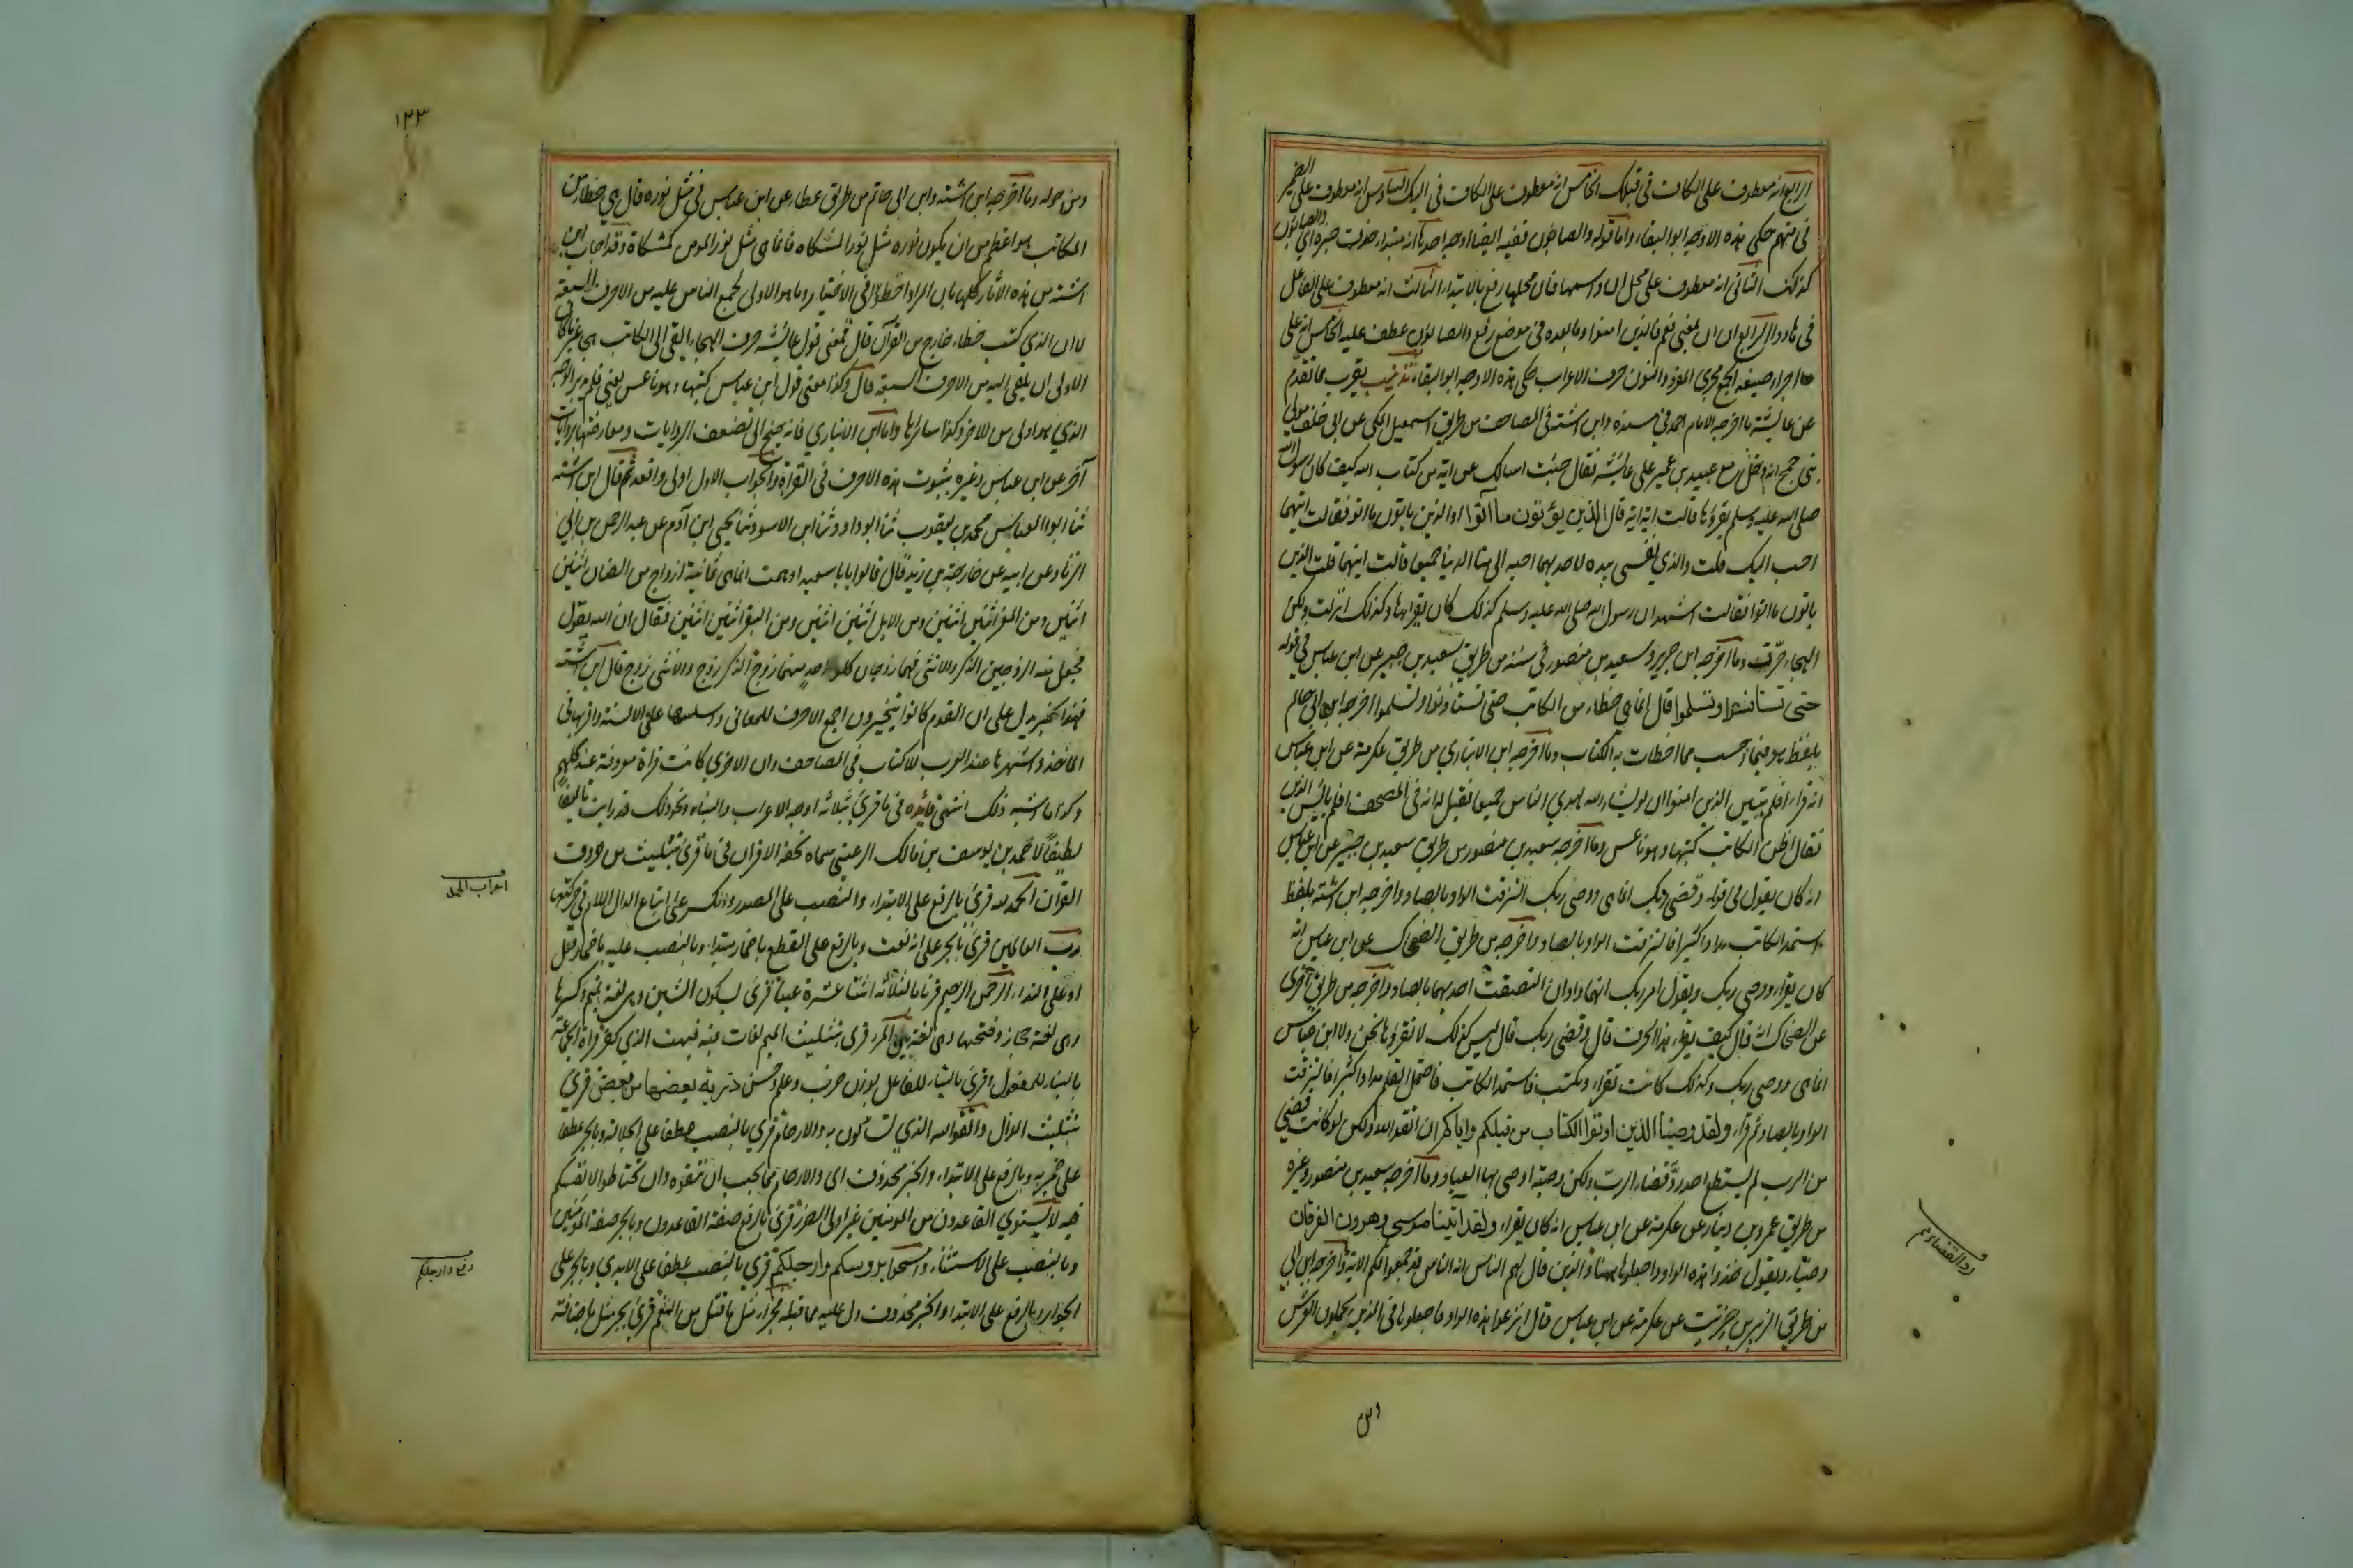 الرابع انه معطوف على الكاف في قبلك الخامس انه معطوف على الكاف في اليك السادس انه معطوف على الضمير
في منهم حكى هذه الاوجه ابو البقاء واما قوله والصابئون ففيه ايضا اوجه احدها انه مبتدا حذف خبره اي والصابئون
كذلك الثاني انه معطوف على محل ان واسمها فان محلها رفع بالابتداء الثالث انه معطوف على الفاعل
في هادوا الرابع ان ان بمعنى نعم فالذين امنوا وما بعده في موضع رفع والصابئون عطف عليه الخامس انه على
اجراء صيغة الجمع مجرى المفرد والنون حرف الاعراب حكى هذه الاوجه ابو البقاء تذنيب يقرب مما تقدم
عن عايشة ما اخرجه الامام احمد في مسنده وابن اشته في المصاحف من طريق اسمعيل المكي عن ابي خلف مولى
بني جمح انه دخل مع عبيد بن عمير على عائشة فقال جئت اسالك عن اية من كتاب الله كيف كان رسول الله
صلى الله عليه وسلم يقرؤها قالت اية اية قال الذين يؤتون ما آتوا او الذين ياتون ما اتوا فقالت ايتهما
احب اليك قلت والذي نفسي بيده لاحديهما احب الي من الدنيا جميعا قالت ايتهما قلت الذين
ياتون ما اتوا فقالت اشهد ان رسول الله صلى الله عليه وسلم كذلك كان يقراها وكذلك انزلت ولكن
الهجاء حرّفت وما اخرجه ابن جرير وسعيد بن منصور في سننه من طريق سعيد بن جبير عن ابن عباس في قوله
حتى تستانسوا وتسلموا قال انما هي خطاء من الكاتب حتى تستاذنوا وتسلموا اخرجه ابن ابي حاتم
بلفظ هو فيما احسب مما اخطات به الكتاب وما اخرجه ابن الانباري من طريق عكرمة عن ابن عباس
انه قراء افلم يتبين الذين امنوا ان لو يشاء الله لهدى الناس جميعا فقيل له انه في المصحف افلم يايئس الذين
فقال اظن الكاتب كتبها وهو ناعس وما اخرجه سعيد بن منصور من طريق سعيد بن جبير عن ابن عباس
انه كان يقول في قوله وقضى ربك انما هي ووصى ربك التزقت الواو بالصاد واخرجه ابن اشته بلفظ
استمد الكاتب مدادا كثيرا فالتزقت الواو بالصاد واخرجه من طريق الضحاك عن ابن عباس انه
كان يقراء ووصى ربك ويقول امر ربك انهما واوان التصقت احديهما بالصاد واخرجه من طريق اخرى
عن الضحاك انه قال كيف يقراء هذا الحرف قال وقضى ربك قال ليس كذلك لا نقرؤها نحن ولا ابن عباس
انما هي ووصى ربك وكذلك كانت تقراء وتكتب فاستمد الكاتب فاحتمل القلم مدادا كثيرا فالتزقت
الواو بالصاد ثم قراء ولقد وصينا الذين اوتوا الكتاب من قبلكم واياكم ان اتقوا الله ولكن لو كانت قضى
من الرب لم يستطع احد ردّ قضاء الرب ولكن وصية اوصى بها العباد وما اخرجه سعيد بن منصور وغيره
من طريق عمرو بن دينار عن عكرمة عن ابن عباس انه كان يقراء ولقد آتينا موسى وهرون الفرقان
وضياء ويقول خذوا هذه الواو واجعلوها ههنا والذين قال لهم الناس ان الناس قد جمعوا لكم الاية واخرجه ابن ابي
من طريق الزبير بن خريت عن عكرمة عن ابن عباس قال انزعوا هذه الواو فاجعلوها في الذين يحملون العرش
ومن
رد القضاء ثم
١٢٣
ومن حوله وما اخرجه ابن اشته وابن ابي حاتم من طريق عطاء عن ابن عباس في مثل نوره قال هي خطا من
الكاتب هو اعظم من ان يكون نوره مثل نور المشكاة فانما هي مثل نور المومن كمشكاة وقد اجاب ابن
اشته من هذه الاثار كلها بان المراد اخطؤا في الاختيار وما هو الاولى لجمع الناس عليه من الاحرف السبعة
لا ان الذي كتب خطاء خارج من القرآن قال فمعنى قول عائشة حرف الهجاء القي الى الكاتب هجا غير ما كان
الاولى ان يلقى اليه من الاحرف السبعة قال وكذا معنى قول ابن عباس كتبها وهو ناعس يعني فلم يتدبر الوجه
الذي هو اولى من الاخر وكذا سائرها واما ابن الانباري فانه جنح الى تضعيف الروايات ومعارضتها بروايات
آخر عن ابن عباس وغيره بثبوت هذه الاحرف في القراة والجواب الاول اولى واقعد ثم قال ابن اشته
ثنا ابو العباس محمد بن يعقوب ثنا ابو داود ثنا ابن الاسود ثنا يحيى ابن آدم عن عبد الرحمن بن ابي
الزناد عن ابيه عن خارجة بن زيد قال قالوا يابا سعيد اوهمت انما هي ثمانية ازواج من الضان اثنين
اثنين ومن المعز اثنين اثنين ومن الابل اثنين اثنين ومن البقر اثنين اثنين فقال ان الله يقول
فجعل منه الزوجين الذكر والانثى فهما زوجان كل واحد منهما زوج الذكر زوج والانثى زوج قال ابن اشته
فهذا الخبر يدل على ان القوم كانوا يتخيرون اجمع الاحرف للمعاني واسلسها على الالسنة واقربها في
الماخذ واشهرها عند العرب للكتاب في المصاحف وان الاخرى كانت قراة معروفة عند كلهم
وكذا ما اشبه ذلك انتهى فائده في ما قرئ بثلاثة اوجه الاعراب والبناء ونحو ذلك قد رايت تاليفا
لطيفا لاحمد بن يوسف بن مالك الرعيني سماه تحفة الاقران في ما قرئ بتثليث من حروف
القران الحمد لله قرئ بالرفع على الابتداء والنصب على المصدر والكسر على اتباع الدال اللام في حركتها
رب العالمين قرئ بالجر على انه نعت وبالرفع على القطع باضمار مبتداء وبالنصب عليه باضمار فعل
او على النداء الرحمن الرحيم قرئا بالثلاثه اثنتا عشرة عينا قرئ بسكون الشين وهي لغة تميم وكسرها
وهي لغة حجاز وفتحها وهي لغة بين المرء قرئ بتثليث الميم لغات فيه فبهت الذي كفر قراة الجماعة
بالبناء للمفعول وقرئ بالبناء للفاعل بوزن ضرب وعلم وحسن ذرية بعضها من بعض قرئ
بتثليث الذال واتقوا الله الذي تساءلون به والارحام قرئ بالنصب عطفا على الجلالة وبالجر عطفا
على ضمير به وبالرفع على الابتداء والخبر محذوف اي والارحام مما يجب ان تتقوه وان تحتاطوا لانفسكم
فيه لا يستوي القاعدون من المومنين غير اولي الضرر قرئ بالرفع صفة القاعدون وبالجر صفة المومنين
وبالنصب على الاستثناء وامسحوا بروسكم وارجلكم قرئ بالنصب عطفا على الايدي وبالجر على
الجوار وبالرفع على الابتداء والخبر محذوف دل عليه مما قبله فجزاء مثل ما قتل من النعم قرئ بجر مثل باضافة
اعراب الحمد
رفع وارجلكم